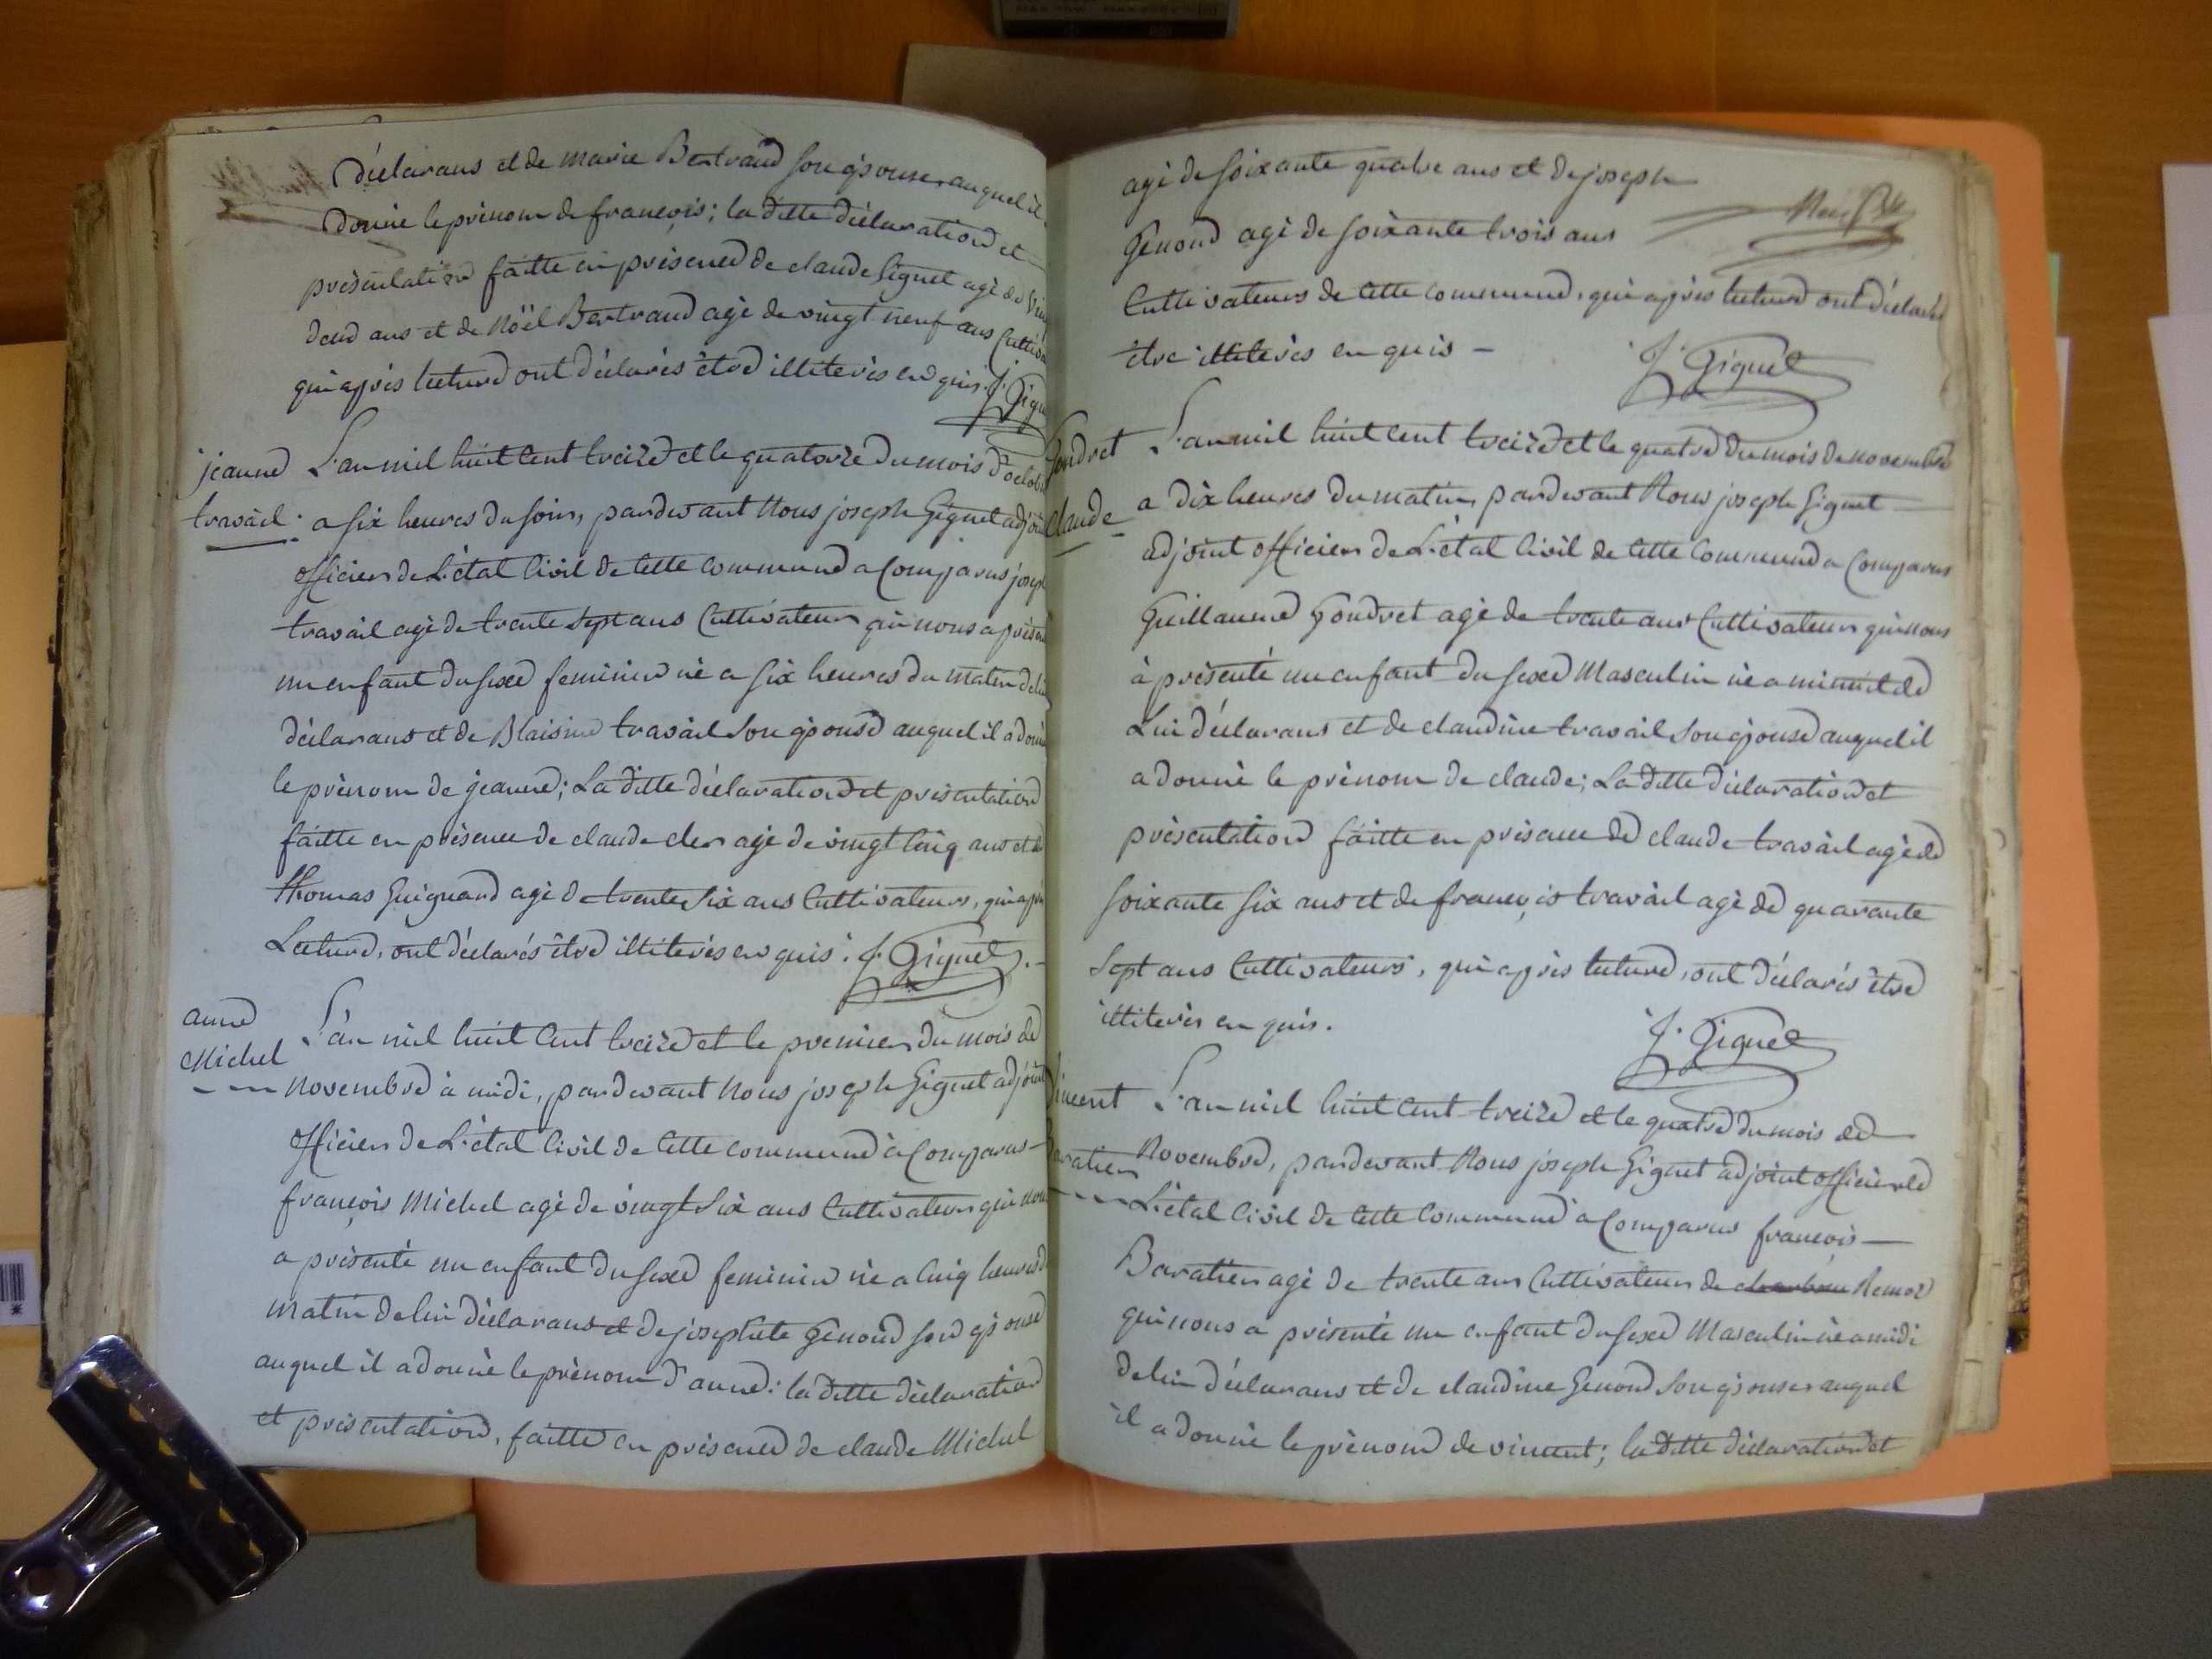 déclarans et de marie Bertrand son épouse, auquel il
donné le prénom de françois; la ditte déclaration et
présentation faitte en présence de claude Giguet agé de
deux ans et de Nöel Bertrand agé de vingt neuf ans
qui après lecture ont déclarés être illiterés en quis. J. Gigu
jeanne
travail
L'an mil huit cent treize et le quatorze du mois d'octob
a six heures du soir, pardevant Nous joseph Giguet adjoint
officier de L'état Civil de cette commune a Comparus josep
travail agé de trente sept ans Cultivateur qui nous a présen
un enfant du sexe feminin né a six heures du matin de lui
déclarant et de Blaisine travail son épouse auquel il a donné
le prénom de jeanne; La ditte déclaration et présentation
faitte en présence de claude cler agé de vingt Cinq ans et de
thomas Guignard agé de trente six ans Cultivateurs, qui aprè
Lecture, ont déclarés être illiterés en quis. J. Giguet.
anne
Michel
L'an mil huit Cent treize et le premier du mois de
novembre à midi, pardevant Nous joseph Giguet adjoint
officier de L'état Civil de cette commune à Comparus
françois Michel agé de vingt six ans Cultivateur qui nou
a présenté un enfant du sexe feminin né a Cinq heures d
matin de lui déclarans et de josephte Genoud son épouse
auquel il a donné le prénom d'anne: la ditte déclaration
et présentation, faitte en présence de claude Michel
agé de soixante quatre ans et de joseph
Genoud agé de soixante trois ans
Cultivateurs de cette commune, qui après lecture ont déclarés
être illiterés en quis — J. Giguet
Gondret
claude
L'an mil huit cent treize et le quatre du mois de novembre
a dix heures du matin, pardevant Nous joseph Giguet
adjoint officier de L'état Civil de cette Commune a Comparus
Guillaume Gondret agé de trente ans Cultivateur qui nous
à présenté un enfant du sexe Masculin né a minuit de
Lui déclarans et de claudine travail son épouse auquel il
a donné le prénom de claude; La ditte déclaration et
présentation faitte en présence de claude travail agé de
soixante six ans et de françois travail agé de quarante
sept ans Cultivateurs, qui après lecture, ont déclarés être
illiterés en quis. J. Giguet
vincent
Baratier
L'an mil huit Cent treize et le quatre du mois de
Novembre, pardevant Nous joseph Giguet adjoint officier de
L'état Civil de cette Commune à Comparus françois
Baratier agé de trente ans Cultivateur de
qui nous a présenté un enfant du sexe Masculin né a midi
de lui déclarans et de claudine Genoud son épouse, auquel
il a donné le prénom de vincent; la ditte déclaration et